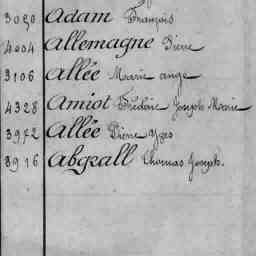 3080 Adam François
4004 Allemagne Pierre
3106 Allée Marie ange
4328 Amiot Frédéric Joseph Marie
3972 Allée Pierre Yves
8916 Abgrall Thomas Joseph.